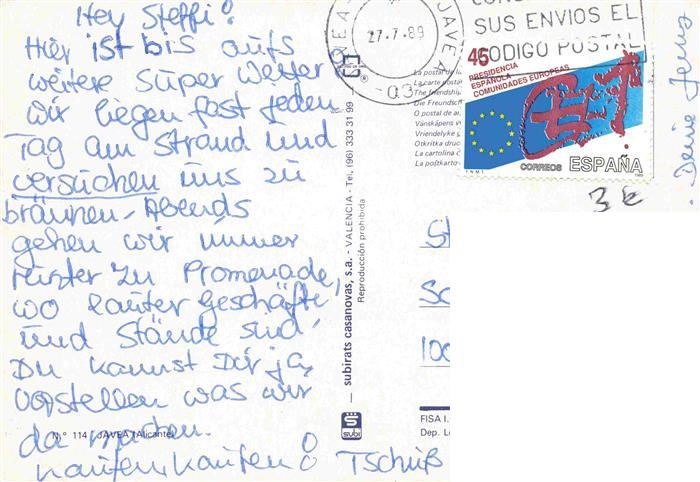 Hey Steffi!
Hier ist bis aufs
weitere super Wetter
wir liegen fast jeden
Tag am Strand und
versuchen uns zu
bräunen. Abends
gehen wir immer
runter zu Promenade,
wo lauter Geschäfte
und Stände sind.
Du kannst Dir ja
vorstellen was wir
da machen.
Kaufen, kaufen! Tschüß
Deine Jenny
Nº 114 JAVEA (Alicante)
subirats casanovas, s.a. - VALENCIA - Tel. (96) 333 31 99
Reproducción prohibida
subi
JAVEA
27.7.89
03
SUS ENVIOS EL
CODIGO POSTAL
La postal de
La carte posta
The friendship
Die Freundsch
O postal de a
Vänskapens v
Vriendelyke
Otkritka druz
La cartolina
La postkarto
46
PRESIDENCIA
ESPAÑOLA
COMUNIDADES EUROPEAS
CORREOS
ESPAÑA
F.N.M.T.
1989
3 €
St
Sc
100
FISA I.
Dep. L